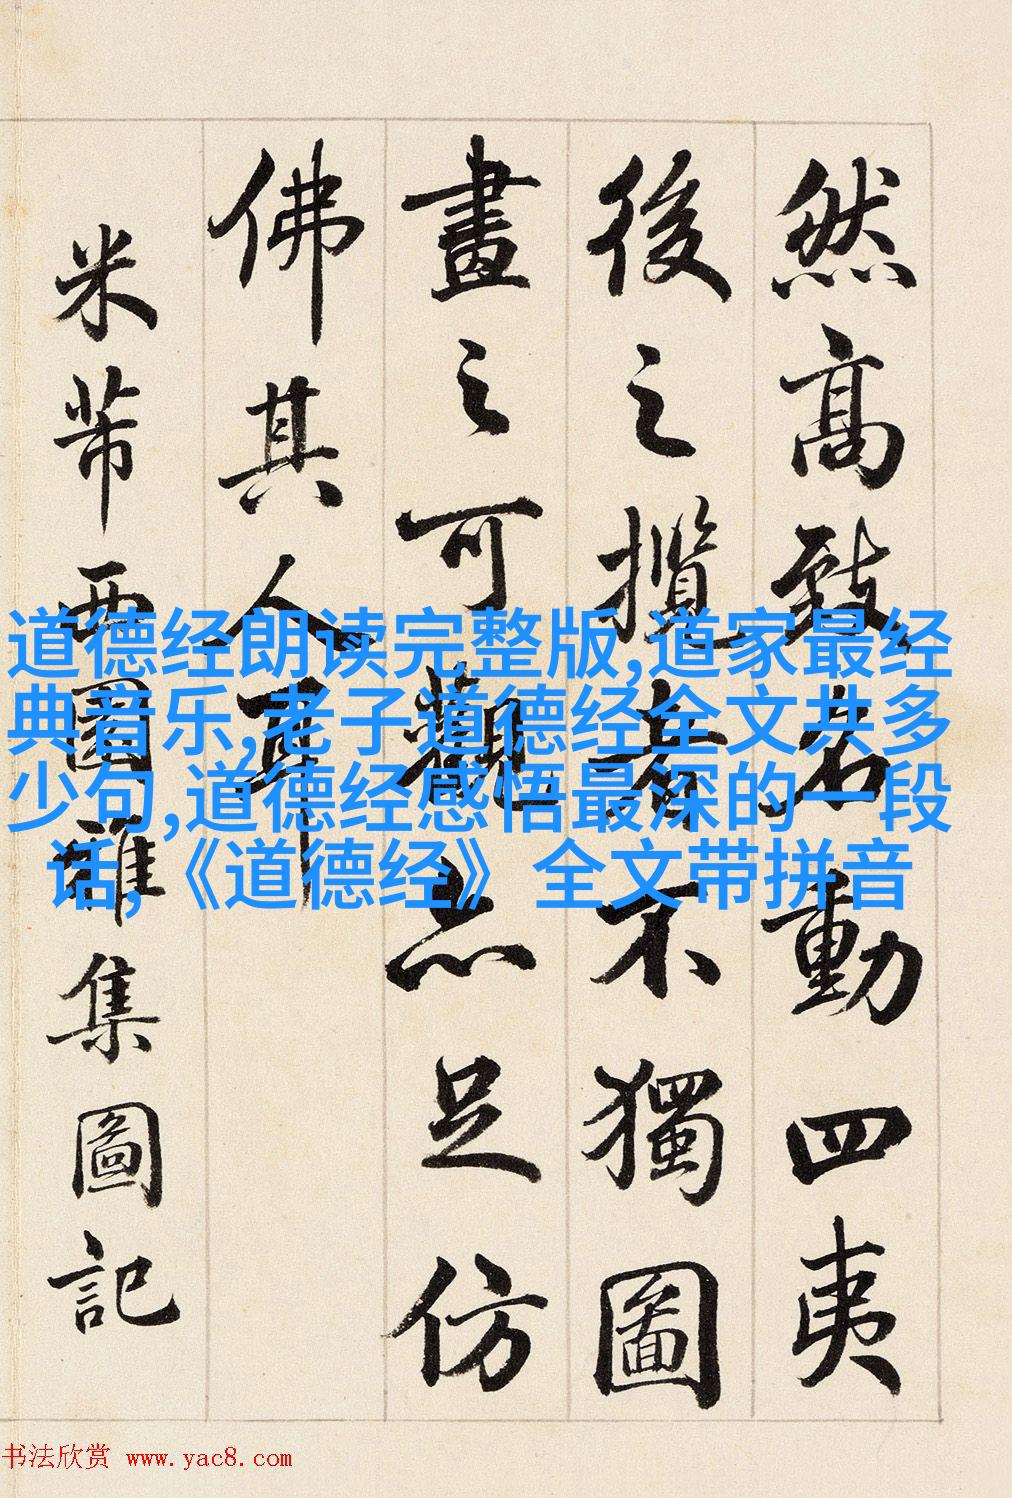 然高致名動四夷
後之攬者不獨圖
畫之可觀亦足仿
佛其人耳
米芾西園雅集圖記
道德经朗读完整版,道家最经
典音乐,老子道德经全文共多
少句,道德经感悟最深的一段
话,《道德经》全文带拼音
书法欣赏 www.yac8.com